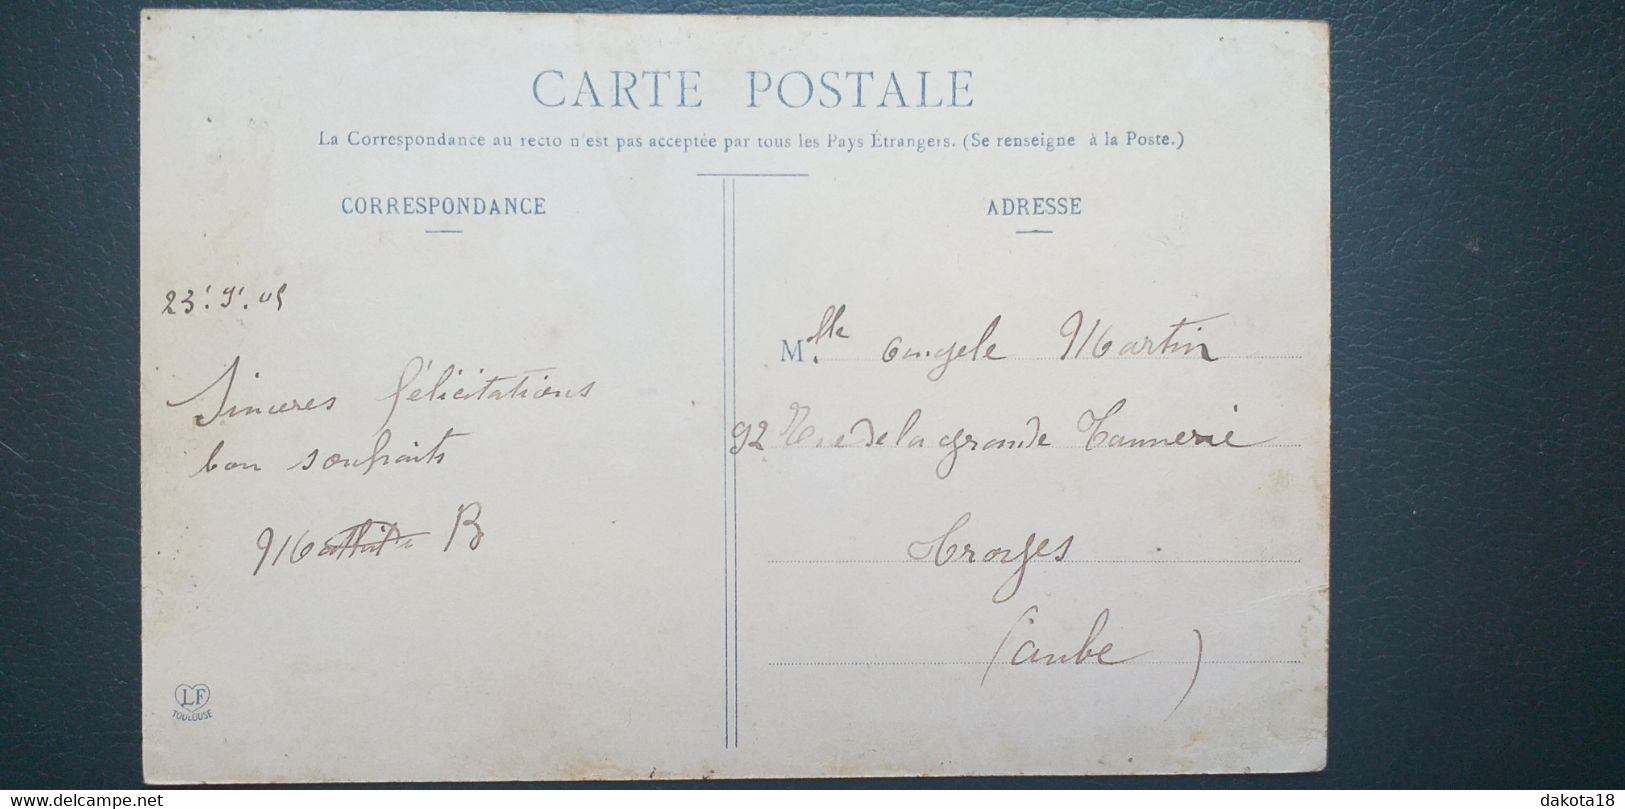 CARTE POSTALE
La Correspondance au recto n'est pas acceptée par tous les Pays Étrangers. (Se renseigne à la Poste.)
CORRESPONDANCE
23.9.05
Sinceres félicitations
bon souhaits
Mathilde B
LF
TOULOUSE
ADRESSE
Mlle Angele Martin
92 Rue de la grande Tannerie
Troyes
(aube)
www.delcampe.net
dakota18